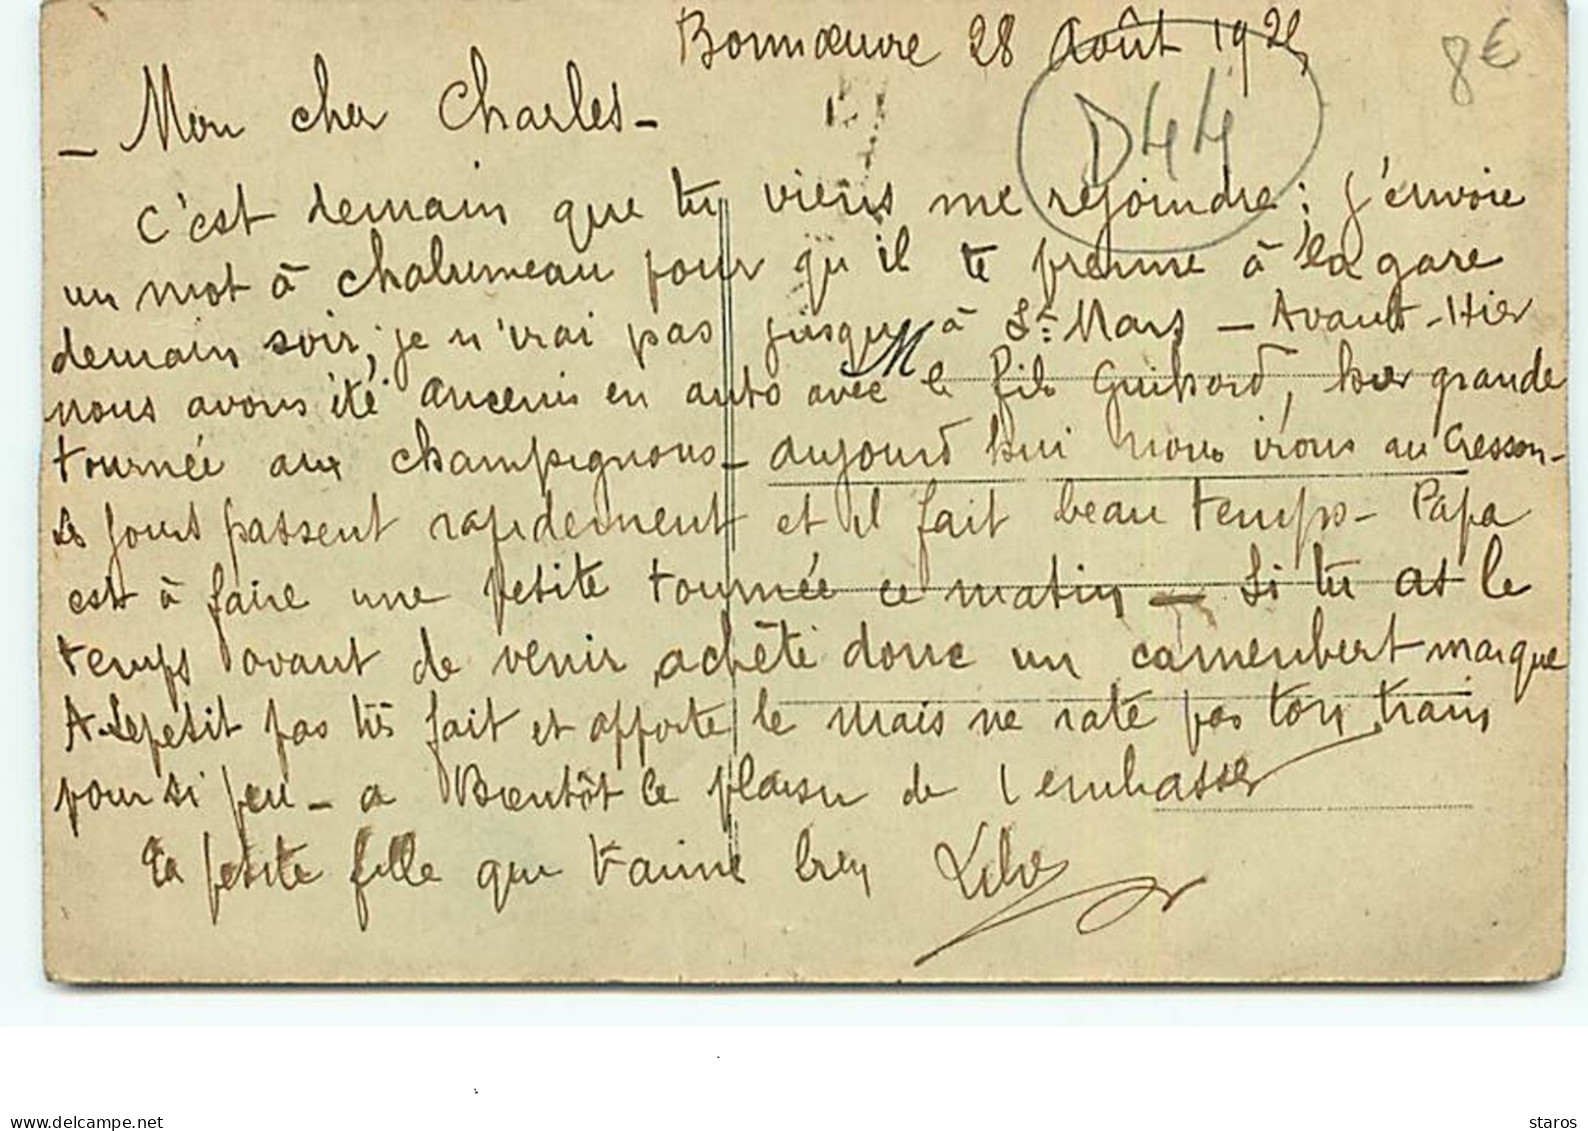 Bonnœuvre 28 Août 192
8€
D44
- Mon cher Charles -
C'est demain que tu viens me rejoindre : j'envoie
un mot à Chalumeau pour qu'il te prenne à la gare
demain soir, je n'irai pas jusqu'à St Mars - Avant-Hier
nous avons été Ancenis en auto avec M le fils Guihard, hier grande
tournée aux champignons - aujourd'hui nous irons au Cresson -
Les jours passent rapidement et il fait beau temps - Papa
est à faire une petite tournée ce matin - Si tu as le
temps avant de venir achète donc un camembert marque
A. Lepetit pas très fait et apporte le mais ne rate pas ton train
pour si peu - a Bientôt le plaisir de t'embrasser
Ta petite fille que t'aime bien
www.delcampe.net
staros